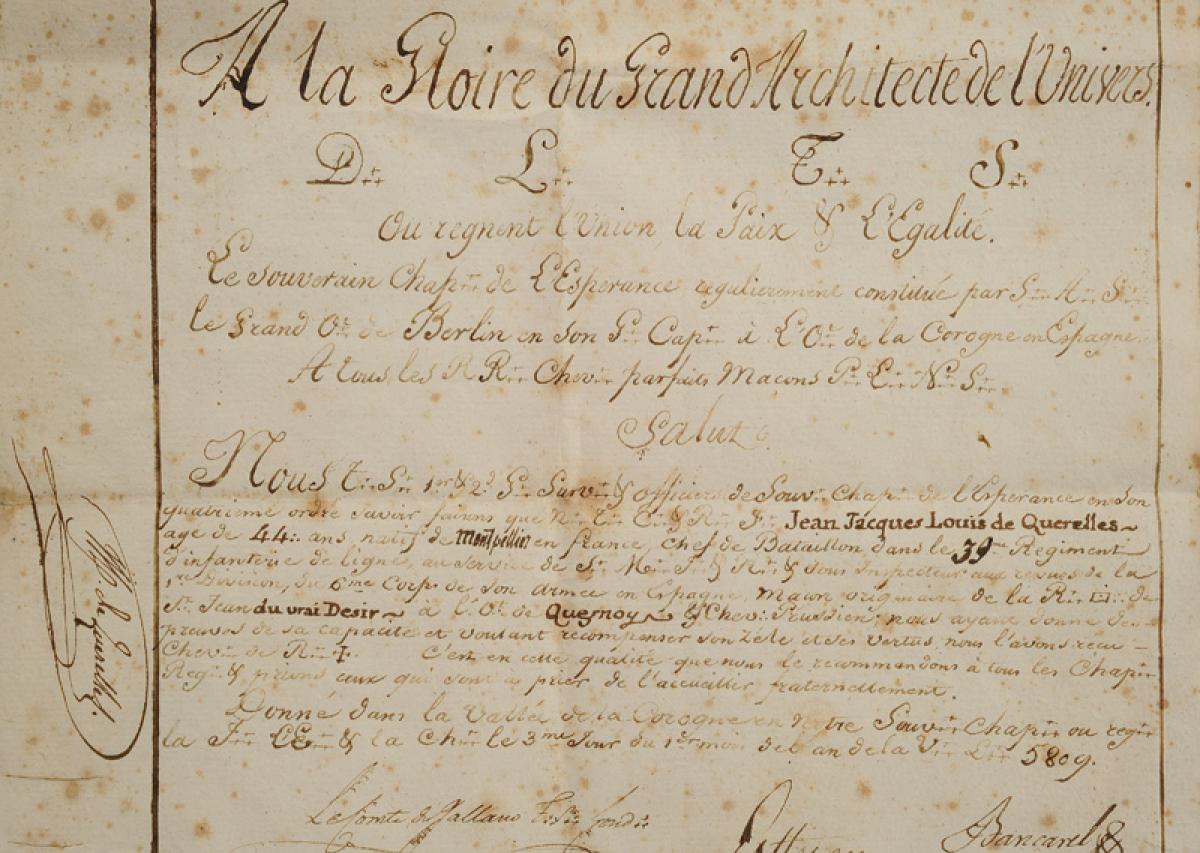 A la Gloire du Grand Architecte de l'Univers.
D∴ L∴ T∴ S∴
Ou regnent l'Union, la Paix & L'Egalité.
Le Souverain Chap∴ de L'Esperance regulierement constitué par S∴ A∴ S∴
le Grand O∴ de Berlin en son G∴ Cap∴ à L'O∴ de la Corogne en Espagne
A tous les R R∴ Chev∴ parfaits Macons P∴ L∴ N∴ S∴
Salut
Nous T∴ S∴ 1er & 2d G∴ Surv∴ & officiers de Souv∴ Chap∴ de l'Esperance en son
quatrieme ordre savoir faisons que N∴ T∴ C∴ & R∴ F∴ Jean Jacques Louis de Querelles
age de 44∴ ans, natif de Montpellier en france, Chef de Bataillon dans le 39me Regiment
d'infanterie de ligne, au service de S∴ M∴ I∴ & R∴ & Sous Inspecteur aux revues de la
1re Division, du 6me Corps de son armée en Espagne, Macon originaire de la R∴ □∴ de
St. Jean du vrai Desir à l'O∴ de Quesnoy & Chev∴ Prussien; nous ayant donné des
preuves de sa capacité et voulant recompenser son Zele et ses vertus, nous l'avons recu
Chev∴ de R∴ ‡. C'est en cette qualité que nous le recommandons à tous les Chap∴
Reg∴ & prions ceux qui sont a prier de l'accueillir fraternellement.
Donné dans la Vallée de la Corogne en Notre Souv∴ Chap∴ ou regn∴
la F∴ L'E∴ & la Ch∴ le 3me Jour du 1er mois de l'an de la V∴ L∴ 5809.
Le Comte de
Bancarel